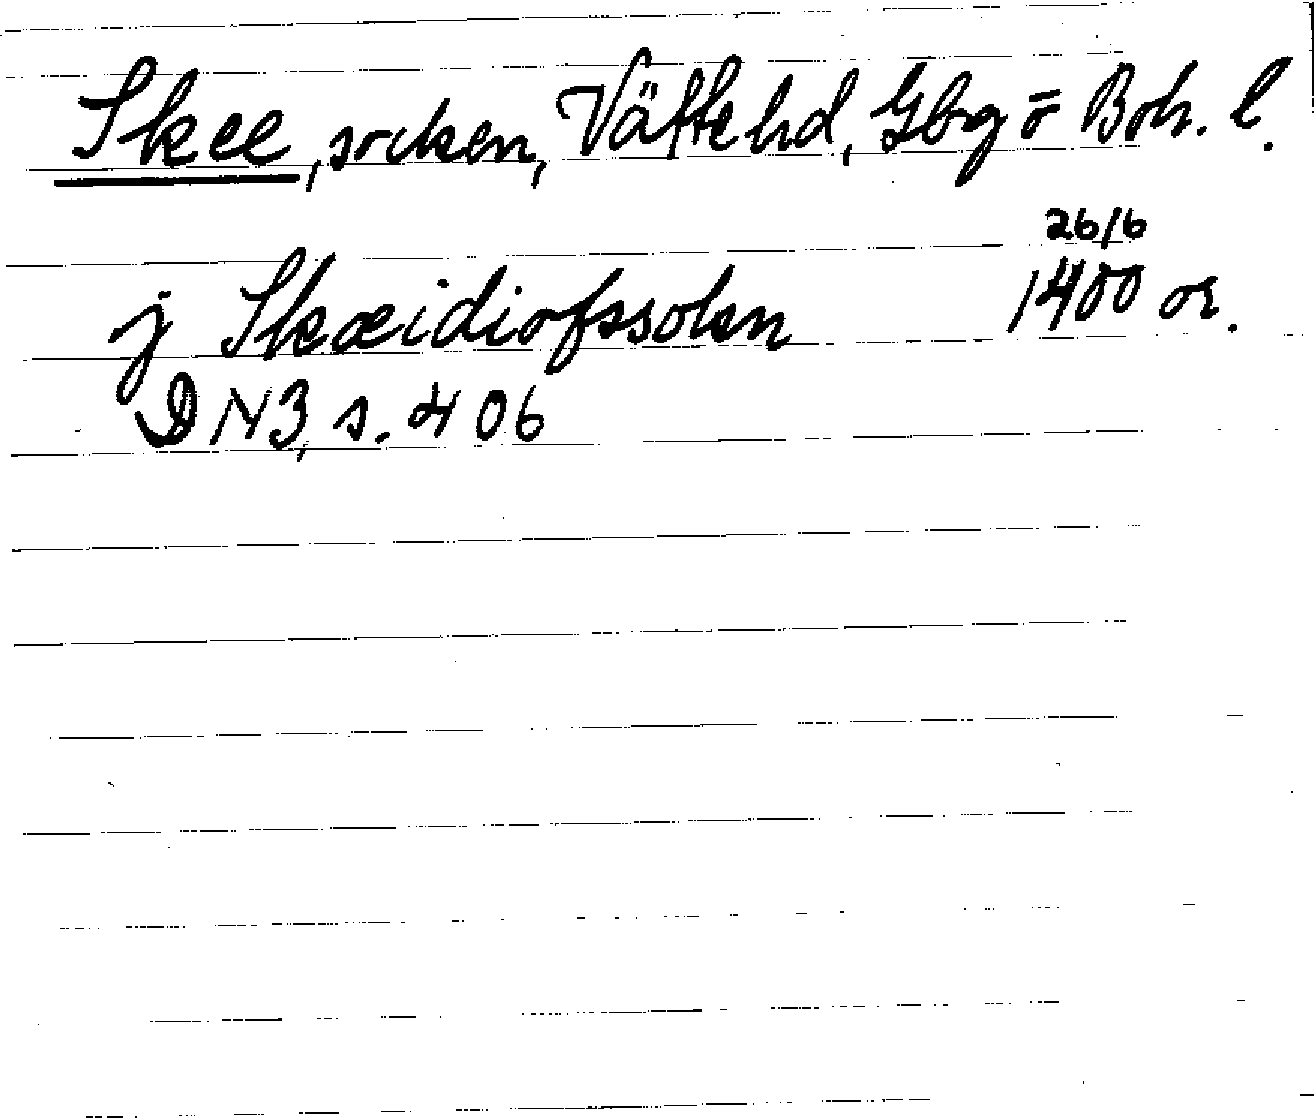 Skee, socken, Vätte hd, Gbg o Boh. l.
26/6
j Skæidiofssokn 1400 or.
DN 3, s. 406